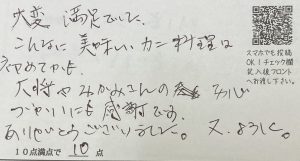 大変 満足でした。
こんなに 美味しい カニ料理は
初めてかも
大将や みかみさんの 心
づかいにも 感謝です。
ありがとうございました。 又、ようしく。
10点満点で 10 点
スマホでも投稿
OK!チェック欄
記入後フロント
へお渡し下さい。